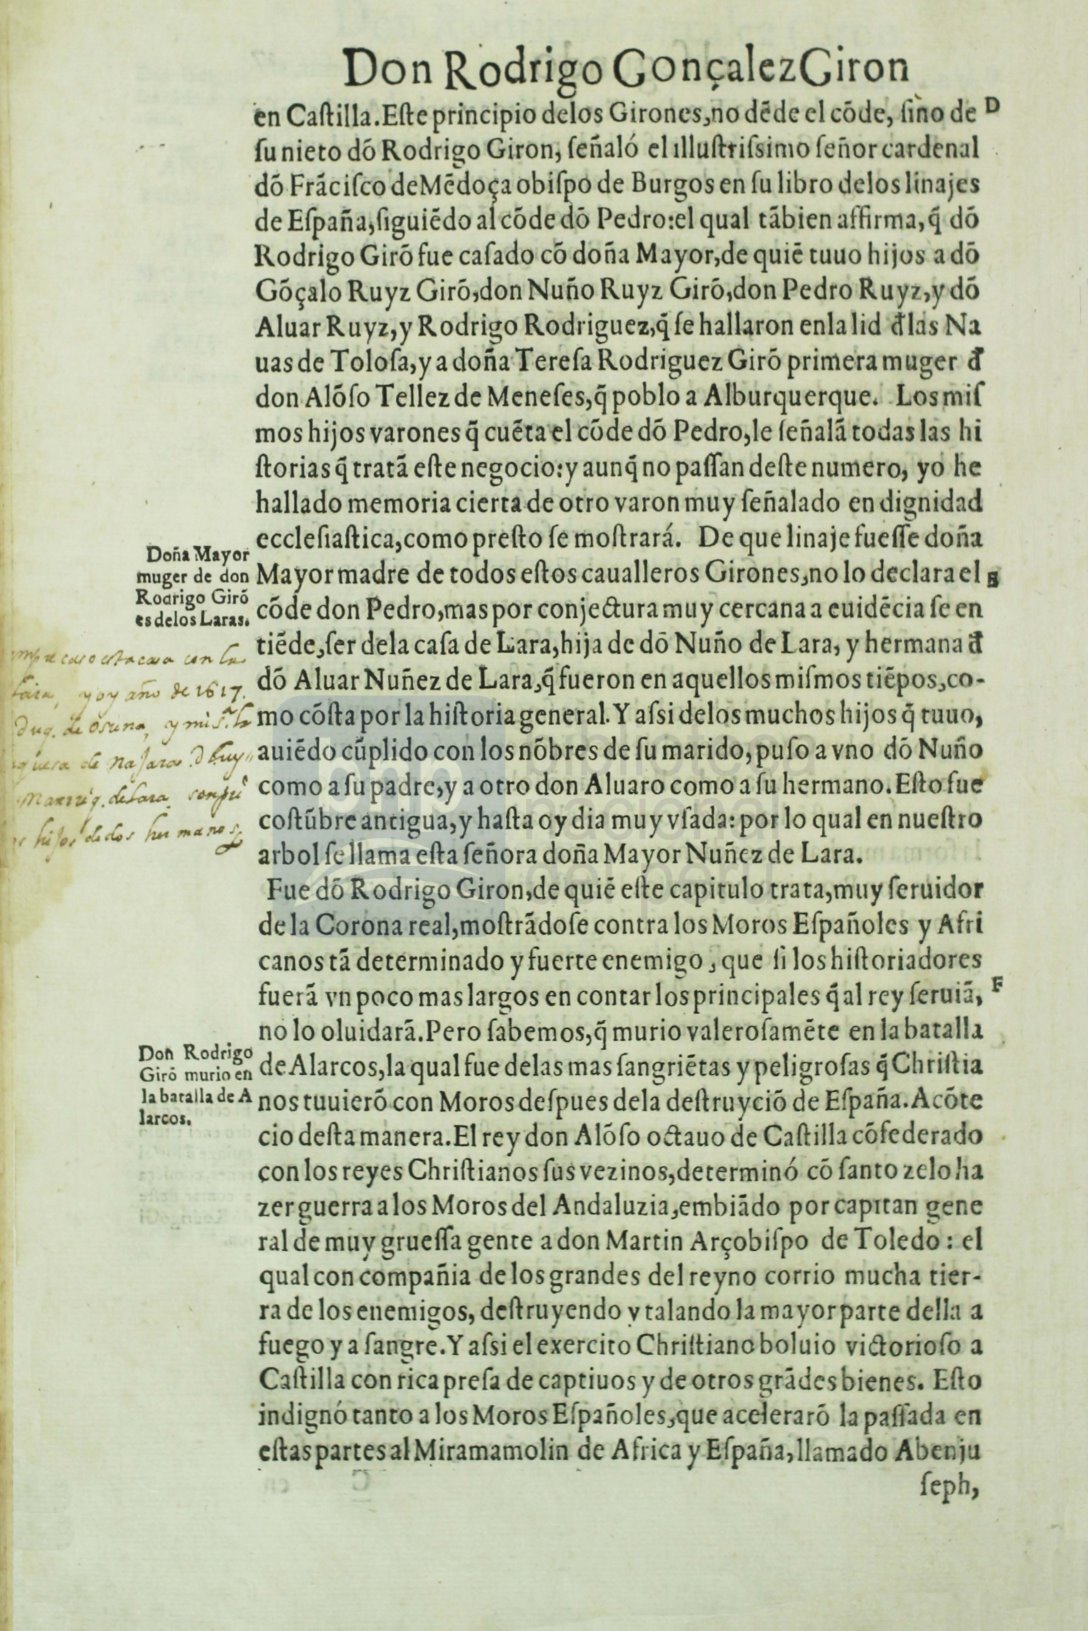 Don Rodrigo Gonçalez Giron
en Caſtilla. Eſte principio delos Girones, no dēde el cōde, ſino de D
ſu nieto dō Rodrigo Giron, ſeñaló el illuſtriſsimo ſeñor cardenal
dō Frāciſco de Mēdoça obiſpo de Burgos en ſu libro delos linajes
de Eſpaña, ſiguiēdo al cōde dō Pedro: el qual tābien affirma, q̄ dō
Rodrigo Girō fue caſado cō doña Mayor, de quiē tuuo hijos a dō
Gōçalo Ruyz Girō, don Nuño Ruyz Girō, don Pedro Ruyz, y dō
Aluar Ruyz, y Rodrigo Rodriguez, q̄ ſe hallaron en la lid đlas Na
uas de Toloſa, y a doña Tereſa Rodriguez Girō primera muger đ
don Alōſo Tellez de Meneſes, q̄ poblo a Alburquerque. Los miſ
mos hijos varones q̄ cuēta el cōde dō Pedro, le ſeñalā todas las hi
ſtorias q̄ tratā eſte negocio: y aunq̄ no paſſan deſte numero, yo he
hallado memoria cierta de otro varon muy ſeñalado en dignidad
eccleſiaſtica, como preſto ſe moſtrará. De que linaje fueſſe doña
Mayor madre de todos eſtos caualleros Girones, no lo declara el
cōde don Pedro, mas por conjectura muy cercana a euidēcia ſe en
tiēde, ſer dela caſa de Lara, hija de dō Nuño de Lara, y hermana đ
dō Aluar Nuñez de Lara, q̄ fueron en aquellos miſmos tiēpos, co-
mo cōſta por la hiſtoria general. Y aſsi delos muchos hijos q̄ tuuo,
auiēdo cūplido con los nōbres de ſu marido, puſo a vno dō Nuño
como a ſu padre, y a otro don Aluaro como a ſu hermano. Eſto fue
coſtūbre antigua, y haſta oy dia muy vſada: por lo qual en nueſtro
arbol ſe llama eſta ſeñora doña Mayor Nuñez de Lara.
Doña Mayor
muger de don
Rodrigo Girō
es delos Laras.
caso esta casa con la
Lara, y oy año de 1617.
Duq. de osuna, y
de najara
Manriq. de lara
hijos de dos hermanos
Fue dō Rodrigo Giron, de quiē eſte capitulo trata, muy ſeruidor
de la Corona real, moſtrādoſe contra los Moros Eſpañoles y Afri
canos tā determinado y fuerte enemigo, que ſi los hiſtoriadores
fuerā vn poco mas largos en contar los principales q̄ al rey ſeruiā, F
no lo oluidarā. Pero ſabemos, q̄ murio valeroſamēte en la batalla
de Alarcos, la qual fue delas mas ſangriētas y peligroſas q̄ Chriſtia
nos tuuierō con Moros deſpues dela deſtruyciō de Eſpaña. Acōte
cio deſta manera. El rey don Alōſo octauo de Caſtilla cōfederado
con los reyes Chriſtianos ſus vezinos, determinó cō ſanto zelo ha
zer guerra a los Moros del Andaluzia, embiādo por capitan gene
ral de muy grueſſa gente a don Martin Arçobiſpo de Toledo: el
qual con compañia de los grandes del reyno corrio mucha tier-
ra de los enemigos, deſtruyendo y talando la mayor parte della a
fuego y a ſangre. Y aſsi el exercito Chriſtiano boluio victorioſo a
Caſtilla con rica preſa de captiuos y de otros grādes bienes. Eſto
indignó tanto a los Moros Eſpañoles, que acelerarō la paſſada en
eſtas partes al Miramamolin de Africa y Eſpaña, llamado Abenju
ſeph,
Don Rodrigo
Girō murio en
la batalla de A
larcos.